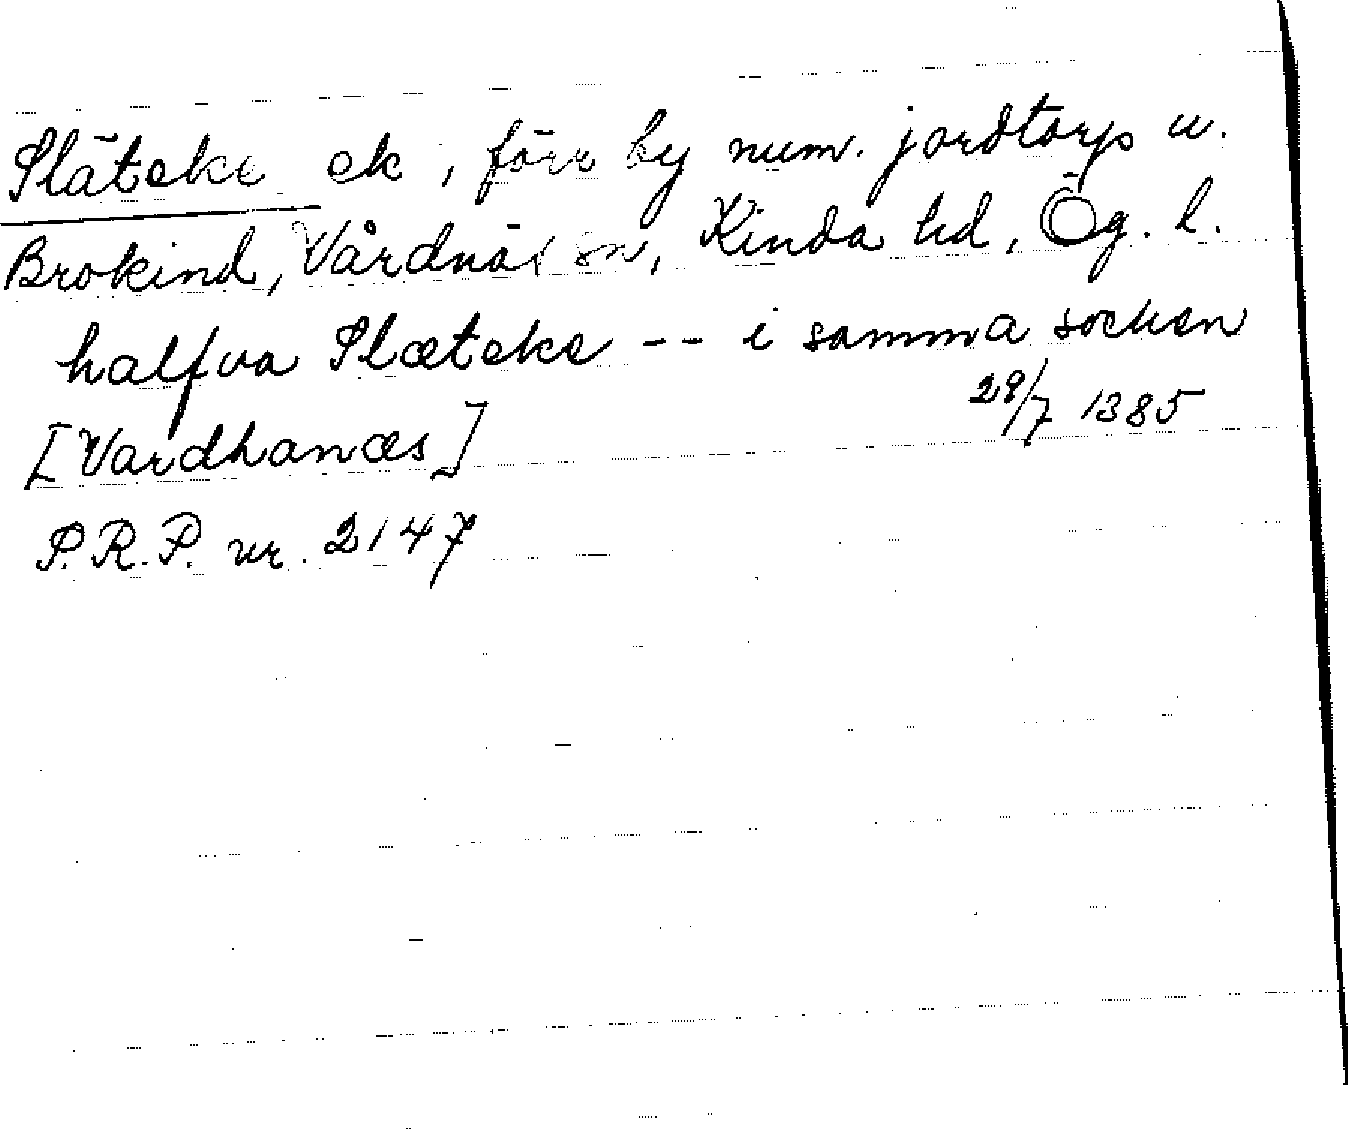 Släteke ek, förr by num. jordtorp u.
Brokind, Vårdnäs sn, Kinda hd, Ög. l.
halfva Slæteke -- i samma socken
[Vardhanæs] 29/7 1385
P.R.P. nr. 2147